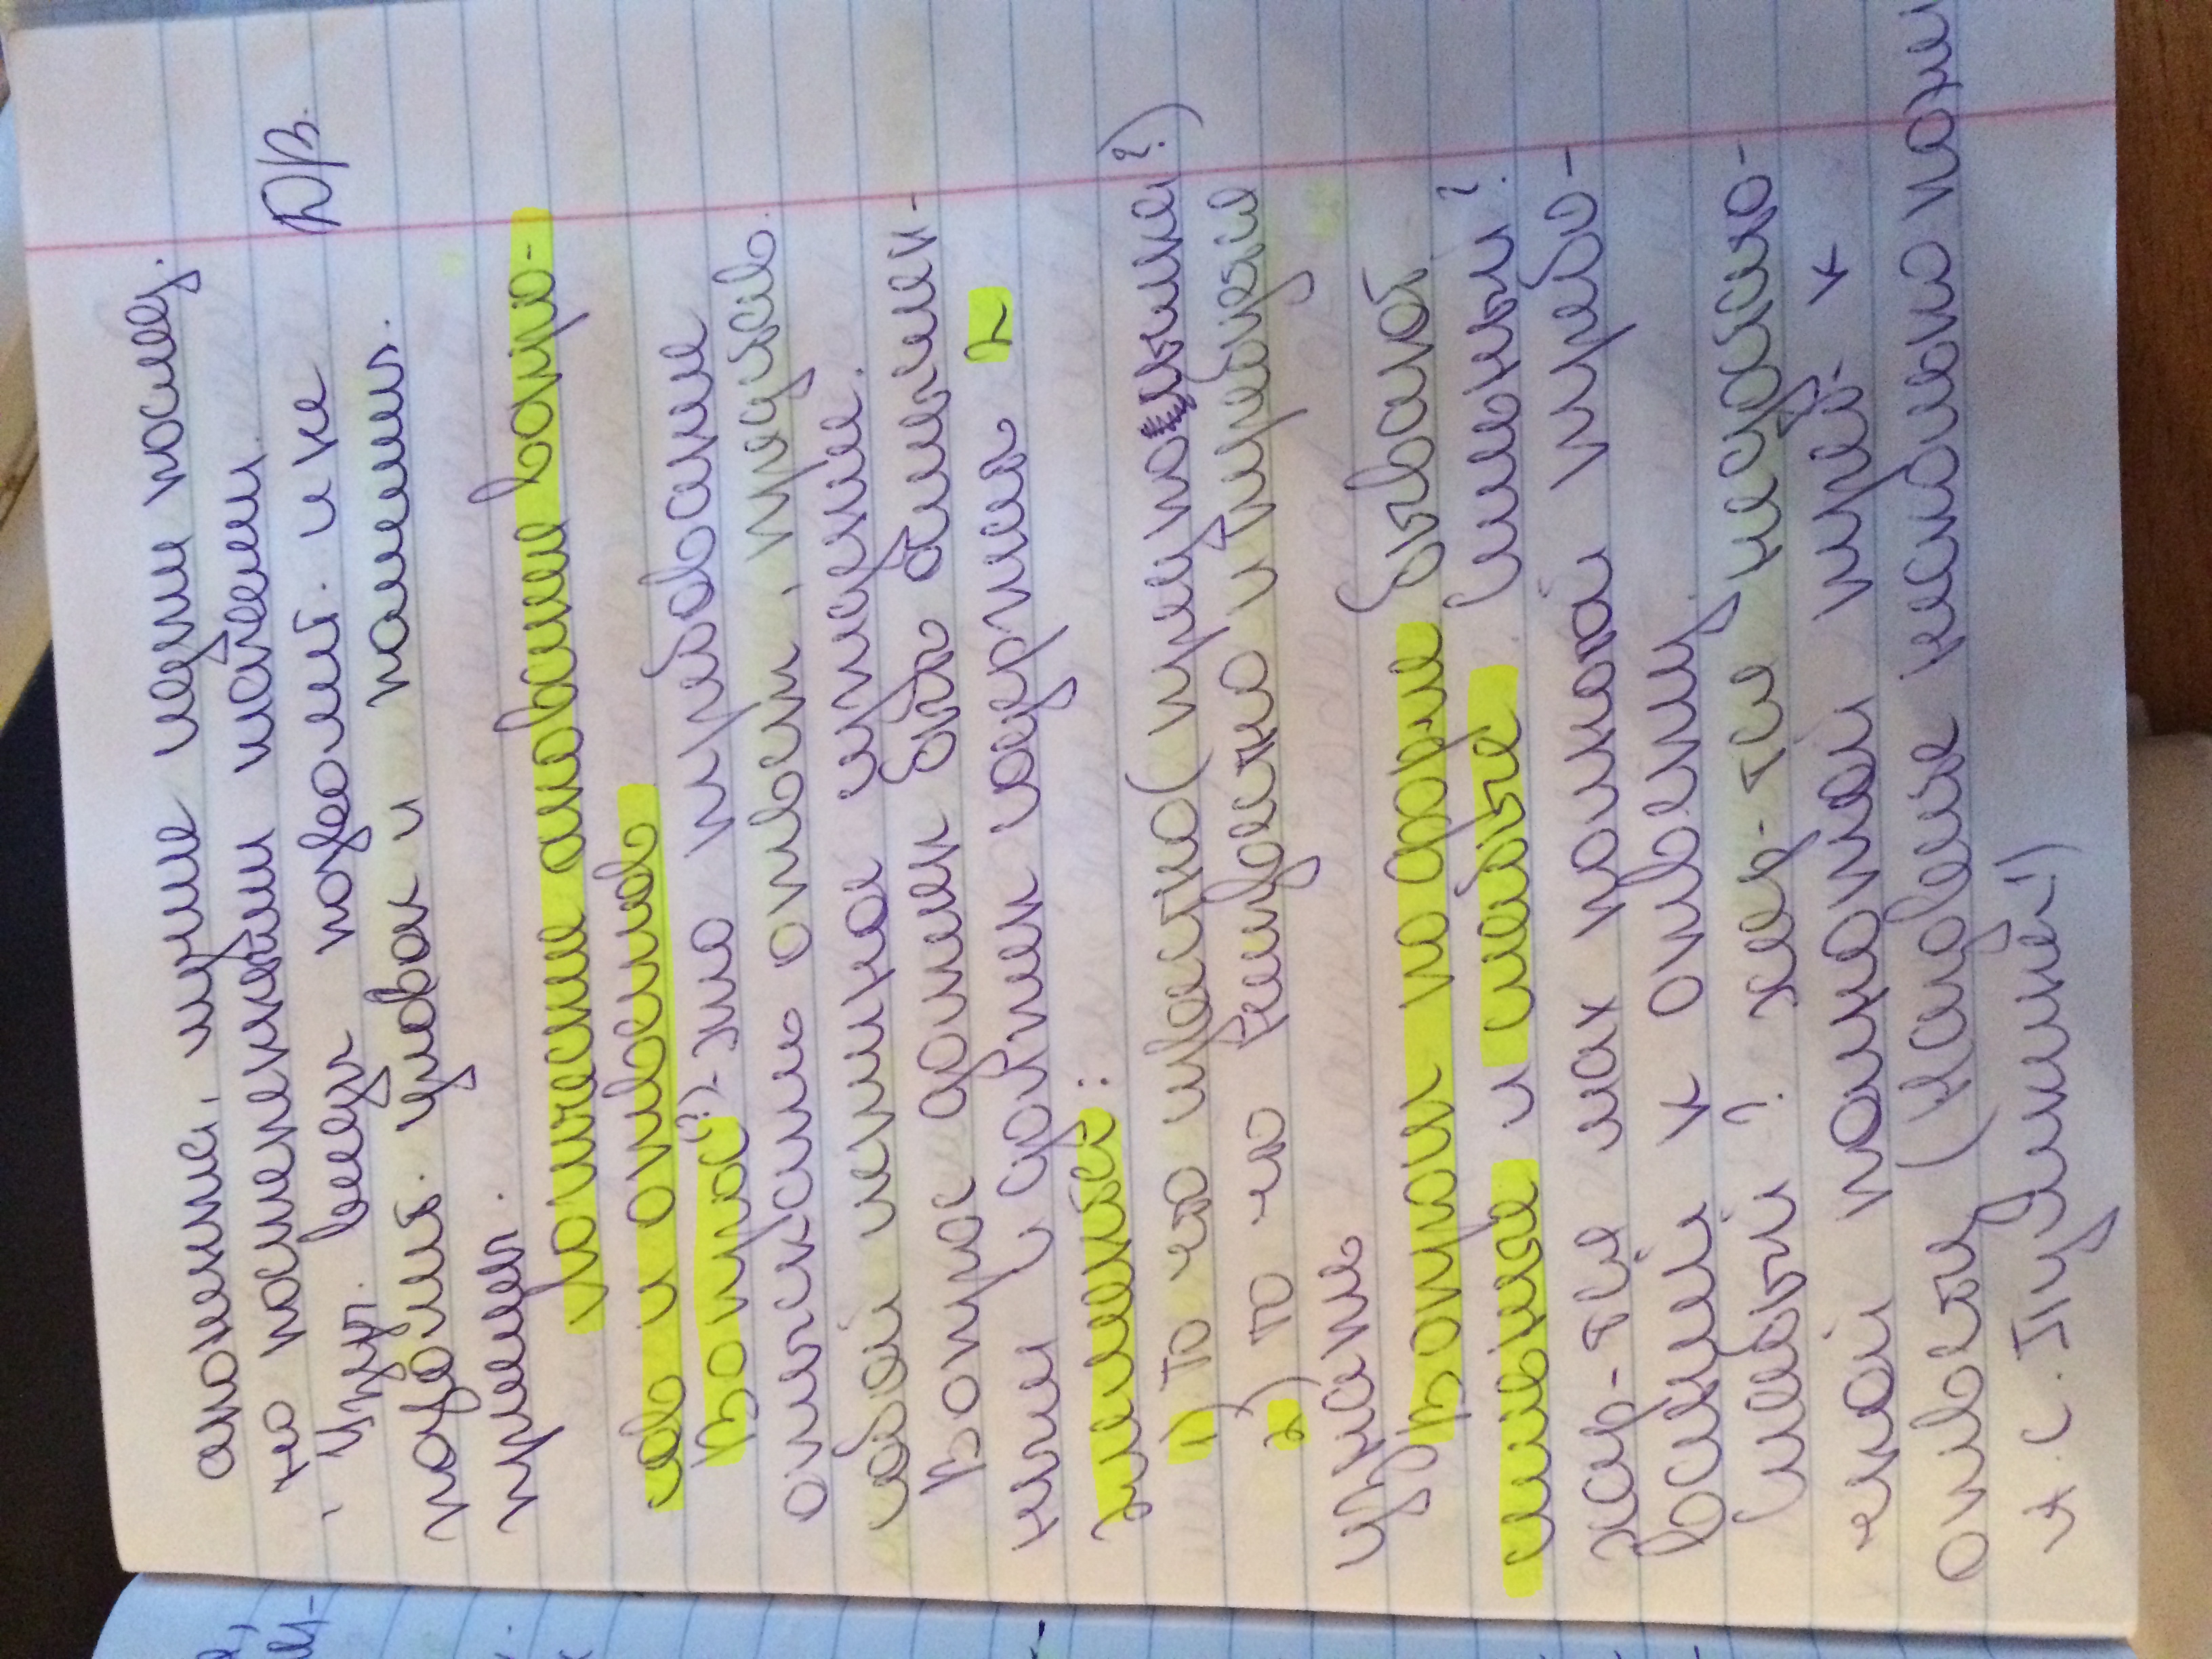 апонента, лучше идти послед.
но постепенными шагами.
Изуч. виды позволит. и не ДВ.
позволит. уловок и полемич.
приемы.
Логические основание вопро-
сов и ответов
Вопрос(?)-это требование
отыскать ответ, представ.
собой истиное суждение.
Вопрос должен быть осмыслен-
ным и должен содержать 2
элемента:
1) То что известно (предпосылка?)
2) то что неизвестно и требуется
узнать
Вопросы по форме бывают
сильные и слабые. Сильный ?
хар-тся мах полнотой требо-
ваний к ответу.
Слабый ? хар-тся недостато-
чной полнотой треб. к
ответу (Назовите несколько поэм
А.С. Пушкина!)